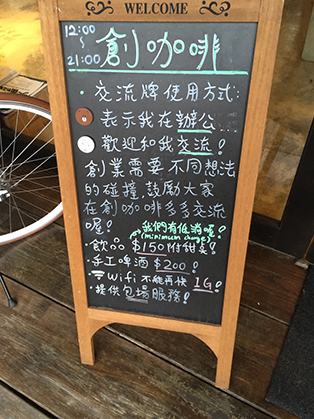 WELCOME
12:00
~
21:00
創咖啡
・交流牌使用方式:
表示我在辦公...
歡迎和我交流!
創業需要不同想法
的碰撞,鼓勵大家
在創咖啡多多交流
喔!
我們有低消喔!
(minimum charge)
・飲品 $150附甜點!
・手工啤酒 $200!
Wifi 不能再快 1G!
・提供包場服務!